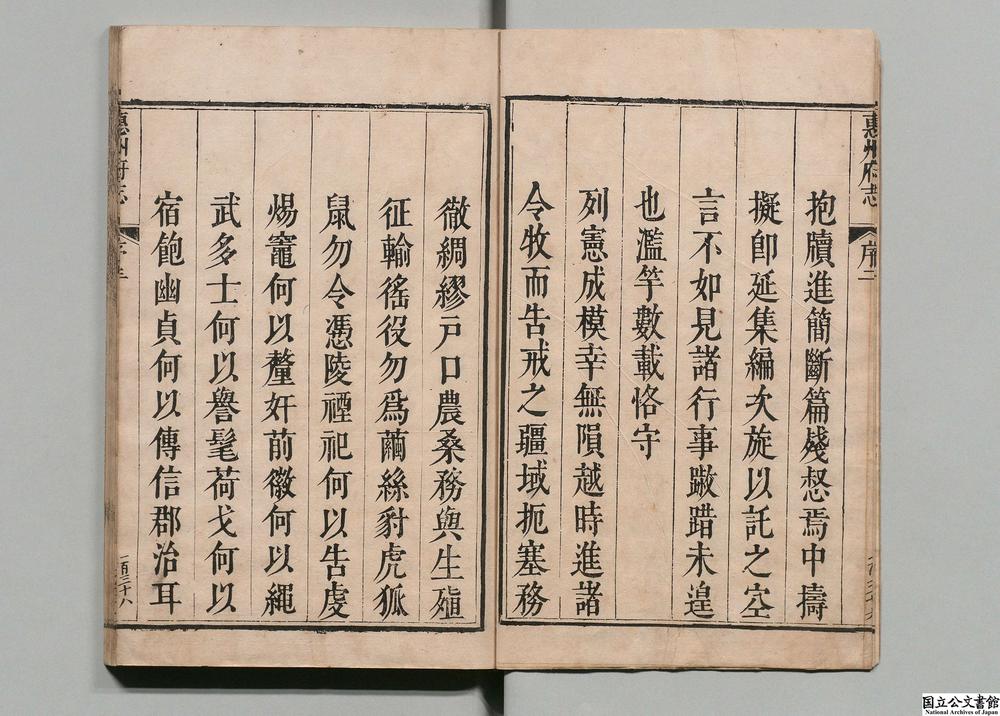 惠州府志
序二
抱牘進簡斷篇殘惄焉中擣
擬即延集編次旋以託之空
言不如見諸行事踧踖未遑
也濫竽數載恪守
列憲成模幸無隕越時進諸
令牧而告戒之疆域扼塞務
徹綢繆戸口農桑務與生殖
征輸徭役勿爲繭絲豺虎狐
鼠勿令憑陵禋祀何以告虔
煬竈何以釐奸前徽何以繩
武多士何以譽髦荷戈何以
宿飽幽貞何以傳信郡治耳
惠州府志
一百三十八
国立公文書館
National Archives of Japan